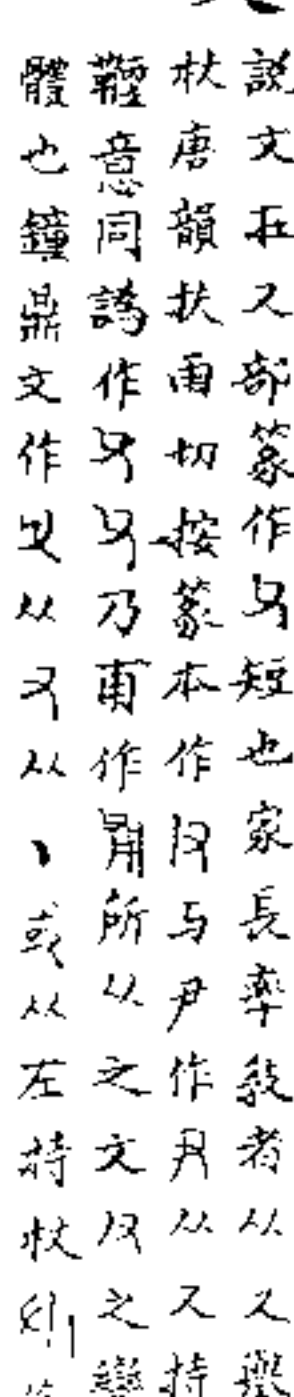 説文在又部篆作𠬝短也家長率教者从又舉
杖唐韻扶雨切按篆本作与尹作从又持
鞾意同譌作乃甫作所从之文之變
體也鐘鼎文作从又从丶或从左持杖